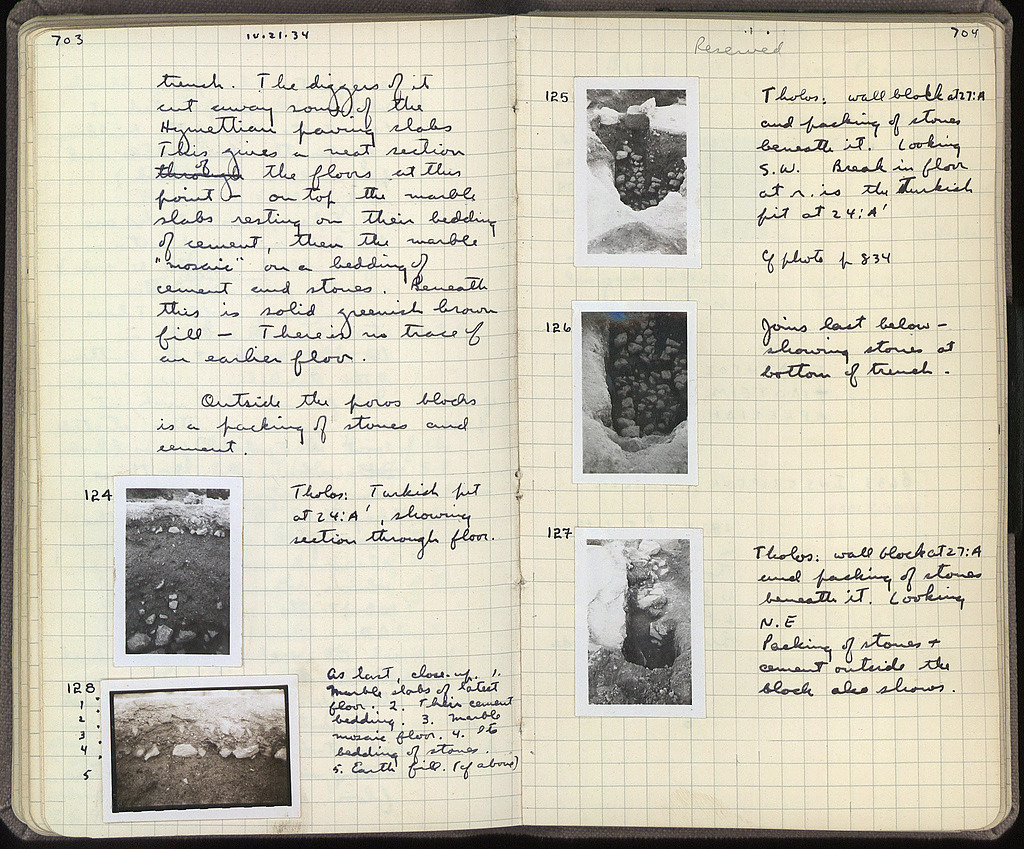 703
IV.21.34
trench. The diggers of it
cut away some of the
Hymettian paving slabs
This gives a neat section
through of the floors at this
point – on top the marble
slabs resting on their bedding
of cement, then the marble
"mosaic" on a bedding of
cement and stones. Beneath
this is solid greenish brown
fill – There is no trace of
an earlier floor.
Outside the poros blocks
is a packing of stones and
cement.
124
Tholos: Turkish pit
at 24:A', showing
section through floor.
128
1
2
3
4
5
As last, close-up. 1.
Marble slabs of latest
floor. 2. Their cement
bedding. 3. Marble
mosaic floor. 4. Its
bedding of stones.
5. Earth fill. (cf above)
704
Reserved
125
Tholos: wall block at 27:A
and packing of stones
beneath it. Looking
S.W. Break in floor
at r. is the Turkish
pit at 24:A'
Cf photo p 834
126
Joins last below –
showing stones at
bottom of trench.
127
Tholos: wall block at 27:A
and packing of stones
beneath it. Looking
N.E
Packing of stones +
cement outside the
block also shows.